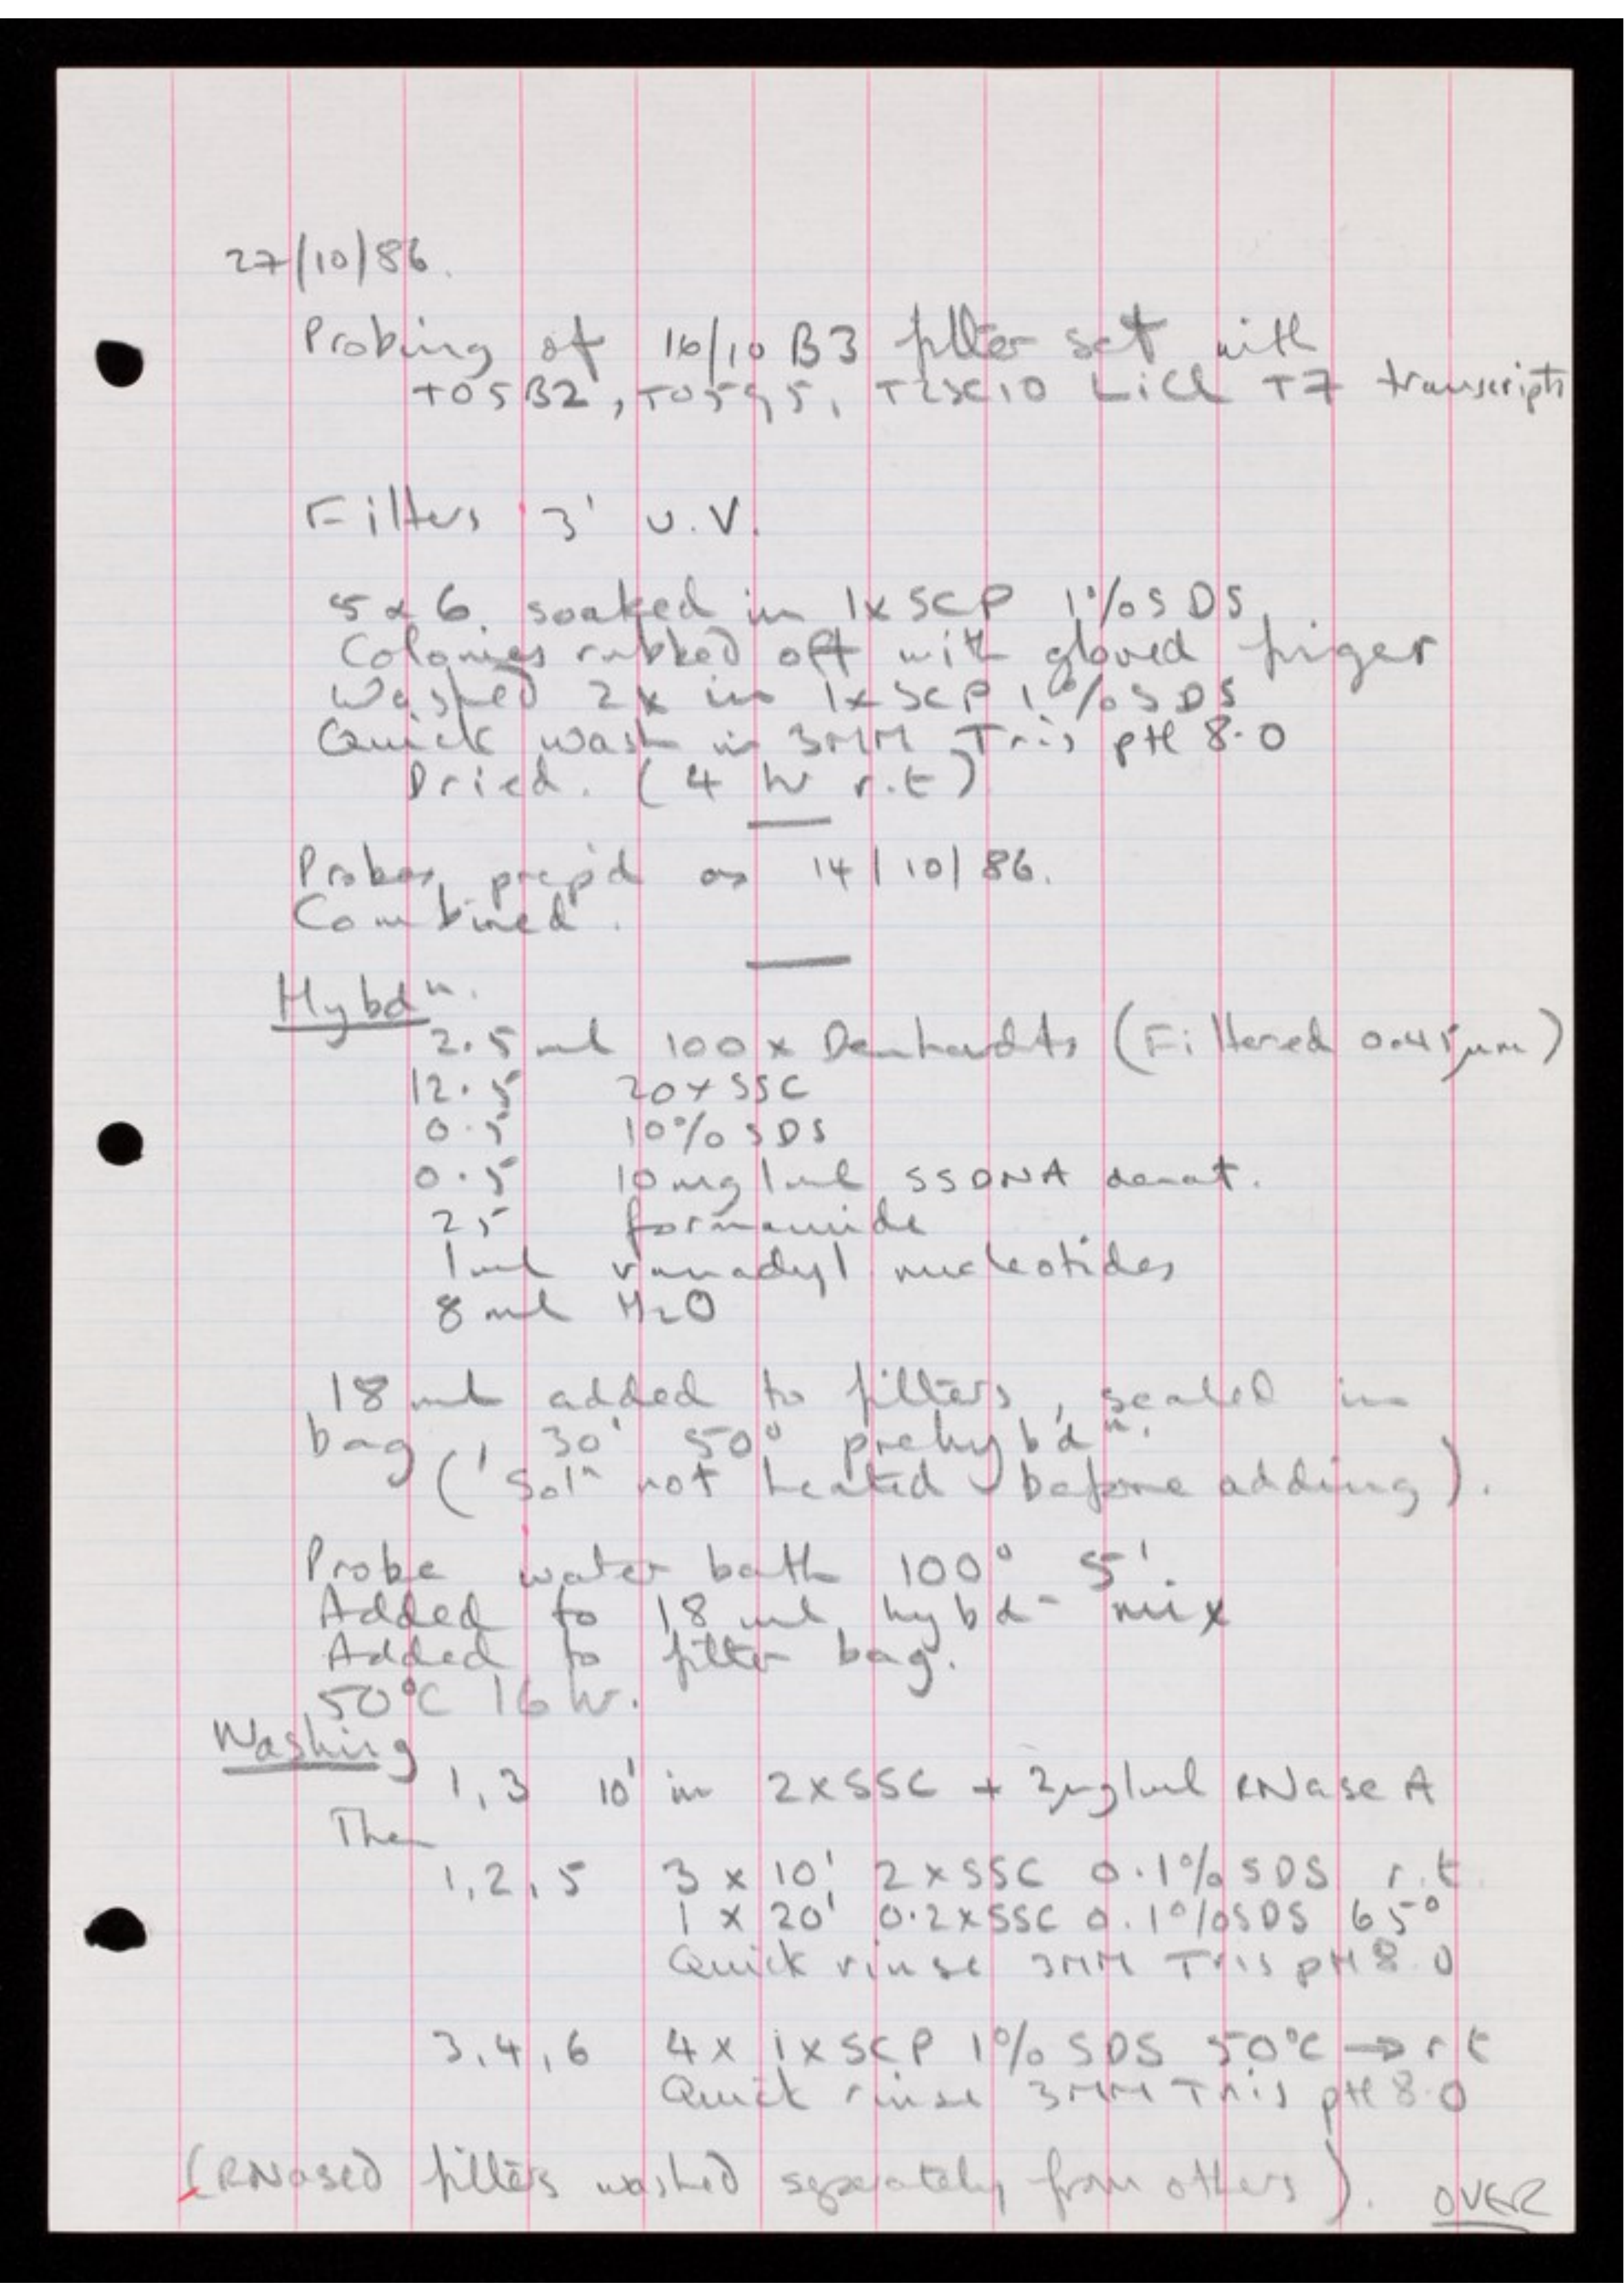 27/10/86.
Probing of 16/10 B3 filter set with
T05B2, T05G5, T25C10 LiCl T7 transcripts
Filters 3' u.V.
5 & 6. soaked in 1x SCP 1% SDS
Colonies rubbed off with gloved finger
Washed 2x in 1x SCP 1% SDS
Quick wash in 3MM Tris pH 8.0
Dried. (4 hr r.t)
Probes prep'd as 14/10/86.
Combined.
Hybdn.
2.5 ml 100 x Denhardts (Filtered 0.45µm)
12.5 20x SSC
0.5 10% SDS
0.5 10mg/ml SSDNA denat.
25 formamide
1ml vanadyl nucleotides
8 ml H2O
18 ml added to filters, sealed in
bag, 30' 50° prehyb'dn.
(Soln not heated before adding).
Probe water bath 100° 5'.
Added to 18 ml hybdn mix
Added to filter bag.
50°C 16 hr.
Washing
1,3 10' in 2xSSC + 2µg/ml RNase A
Then
1,2,5 3 x 10' 2xSSC 0.1% SDS r.t.
1 x 20' 0.2xSSC 0.1% SDS 65°
Quick rinse 3MM Tris pH 8.0
3,4,6 4x 1xSCP 1% SDS 50°C → rt
Quick rinse 3MM Tris pH 8.0
(RNased filters washed separately from others). OVER